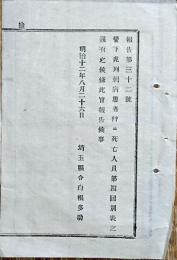 報告第三十二號
管下虎列剌病患者幷ニ死亡人員第四回別表之
通有之候條此旨報告候事
明治十二年八月二十六日
埼玉縣令白根多助